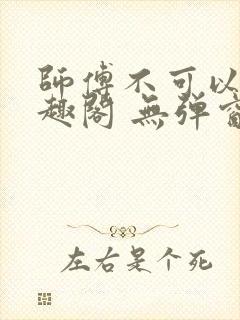 師傅不可以
趣閣 無彈
左右是个死